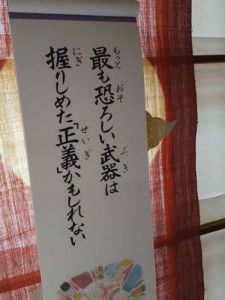 最も恐ろしい武器は
握りしめた「正義」かもしれない